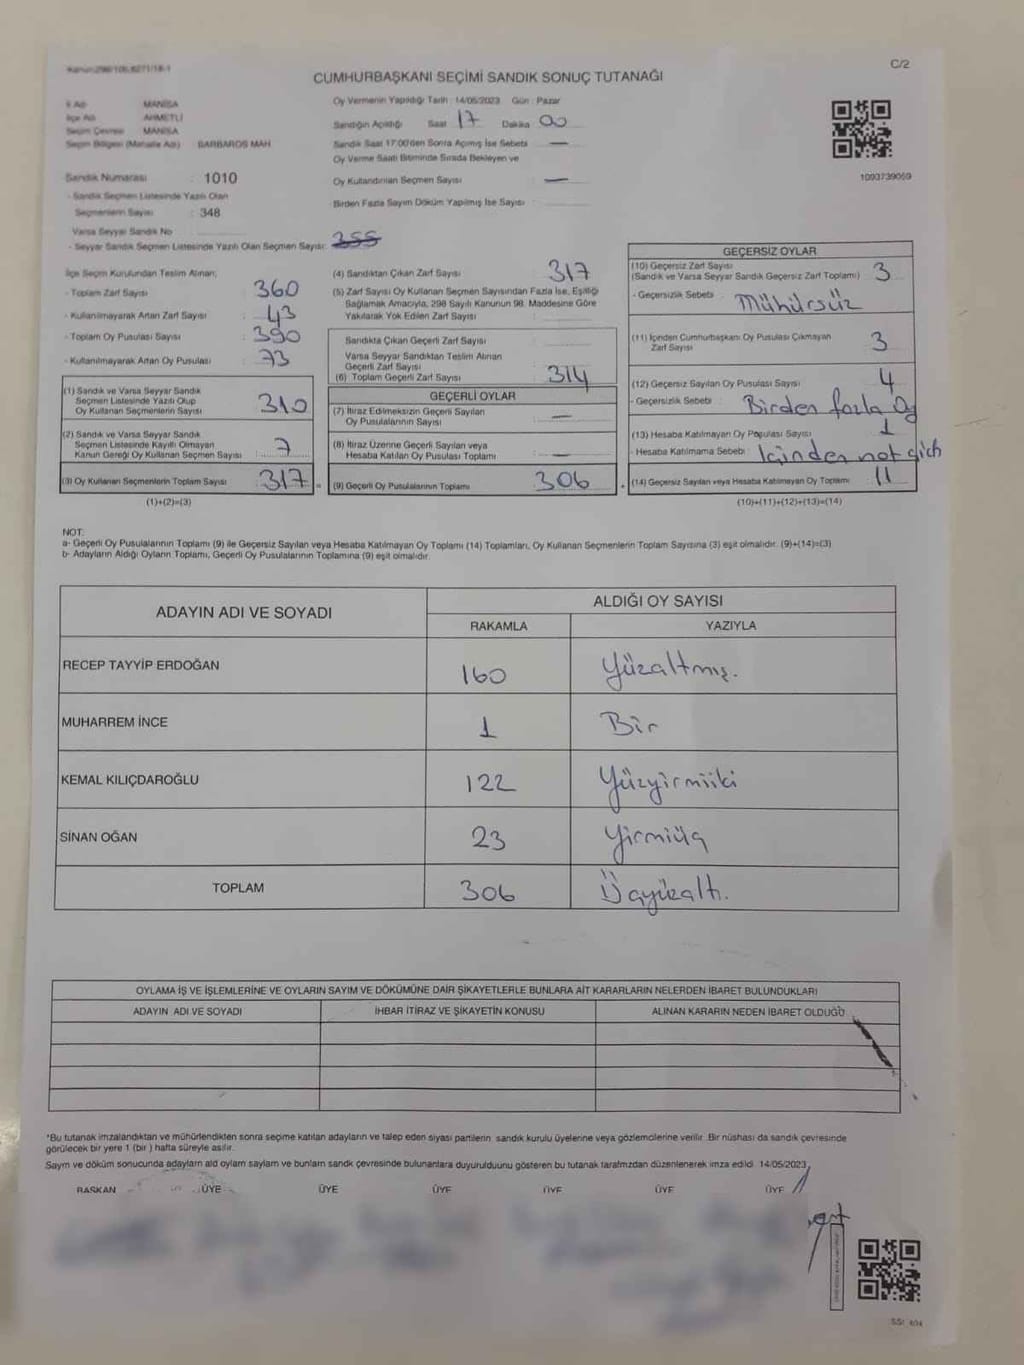 Kanun:298/105,6271/18-1
C/2
CUMHURBAŞKANI SEÇİMİ SANDIK SONUÇ TUTANAĞI
İl Adı MANİSA
İlçe Adı AHMETLİ
Seçim Çevresi MANİSA
Seçim Bölgesi (Mahalle Adı) BARBAROS MAH
Sandık Numarası : 1010
- Sandık Seçmen Listesinde Yazılı Olan
Seçmenlerin Sayısı : 348
Varsa Seyyar Sandık No
- Seyyar Sandık Seçmen Listesinde Yazılı Olan Seçmen Sayısı: 355
Oy Vermenin Yapıldığı Tarih : 14/05/2023 Gün : Pazar
Sandığın Açıldığı Saat 17 Dakika 00
Sandık Saat 17:00'den Sonra Açılmış İse Sebebi —
Oy Verme Saati Bitiminde Sırada Bekleyen ve
Oy Kullandırılan Seçmen Sayısı : —
Birden Fazla Sayım Döküm Yapılmış İse Sayısı :
1093739069
İlçe Seçim Kurulundan Teslim Alınan;
- Toplam Zarf Sayısı : 360
- Kullanılmayarak Artan Zarf Sayısı : 43
- Toplam Oy Pusulası Sayısı : 390
- Kullanılmayarak Artan Oy Pusulası : 73
(1) Sandık ve Varsa Seyyar Sandık
Seçmen Listesinde Yazılı Olup
Oy Kullanan Seçmenlerin Sayısı : 310
(2) Sandık ve Varsa Seyyar Sandık
Seçmen Listesinde Kayıtlı Olmayan
Kanun Gereği Oy Kullanan Seçmen Sayısı : 7
(3) Oy Kullanan Seçmenlerin Toplam Sayısı : 317
(1)+(2)=(3)
(4) Sandıktan Çıkan Zarf Sayısı : 317
(5) Zarf Sayısı Oy Kullanan Seçmen Sayısından Fazla İse, Eşitliği
Sağlamak Amacıyla, 298 Sayılı Kanunun 98. Maddesine Göre
Yakılarak Yok Edilen Zarf Sayısı :
Sandıkta Çıkan Geçerli Zarf Sayısı
Varsa Seyyar Sandıktan Teslim Alınan
Geçerli Zarf Sayısı
(6) Toplam Geçerli Zarf Sayısı : 314
GEÇERLİ OYLAR
(7) İtiraz Edilmeksizin Geçerli Sayılan
Oy Pusulalarının Sayısı : —
(8) İtiraz Üzerine Geçerli Sayılan veya
Hesaba Katılan Oy Pusulası Toplamı : —
= (9) Geçerli Oy Pusulalarının Toplamı : 306
GEÇERSİZ OYLAR
(10) Geçersiz Zarf Sayısı
(Sandık ve Varsa Seyyar Sandık Geçersiz Zarf Toplamı) : 3
- Geçersizlik Sebebi : Mühürsüz
(11) İçinden Cumhurbaşkanı Oy Pusulası Çıkmayan
Zarf Sayısı : 3
(12) Geçersiz Sayılan Oy Pusulası Sayısı : 4
- Geçersizlik Sebebi : Birden fazla oy
(13) Hesaba Katılmayan Oy Pusulası Sayısı : 1
- Hesaba Katılmama Sebebi : İçinden not çıktı
+ (14) Geçersiz Sayılan veya Hesaba Katılmayan Oy Toplamı : 11
(10)+(11)+(12)+(13)=(14)
NOT:
a- Geçerli Oy Pusulalarının Toplamı (9) ile Geçersiz Sayılan veya Hesaba Katılmayan Oy Toplamı (14) Toplamları, Oy Kullanan Seçmenlerin Toplam Sayısına (3) eşit olmalıdır. (9)+(14)=(3)
b- Adayların Aldığı Oyların Toplamı, Geçerli Oy Pusulalarının Toplamına (9) eşit olmalıdır.
ADAYIN ADI VE SOYADI
ALDIĞI OY SAYISI
RAKAMLA YAZIYLA
RECEP TAYYİP ERDOĞAN 160 Yüzaltmış.
MUHARREM İNCE 1 Bir
KEMAL KILIÇDAROĞLU 122 Yüzyirmiiki
SİNAN OĞAN 23 Yirmiüç
TOPLAM 306 Üçyüzaltı.
OYLAMA İŞ VE İŞLEMLERİNE VE OYLARIN SAYIM VE DÖKÜMÜNE DAİR ŞİKAYETLERLE BUNLARA AİT KARARLARIN NELERDEN İBARET BULUNDUKLARI
ADAYIN ADI VE SOYADI İHBAR İTİRAZ VE ŞİKAYETİN KONUSU ALINAN KARARIN NEDEN İBARET OLDUĞU
*Bu tutanak imzalandıktan ve mühürlendikten sonra seçime katılan adayların ve talep eden siyasi partilerin sandık kurulu üyelerine veya gözlemcilerine verilir. Bir nüshası da sandık çevresinde
görülecek bir yere 1 (bir) hafta süreyle asılır.
Sayım ve döküm sonucunda adayların aldığı oyların sayıların bunların sandık çevresinde bulunanlara duyurulduğunu gösteren bu tutanak tarafımızdan düzenlenerek imza edildi. 14/05/2023
BAŞKAN ÜYE ÜYE ÜYE ÜYE ÜYE ÜYE